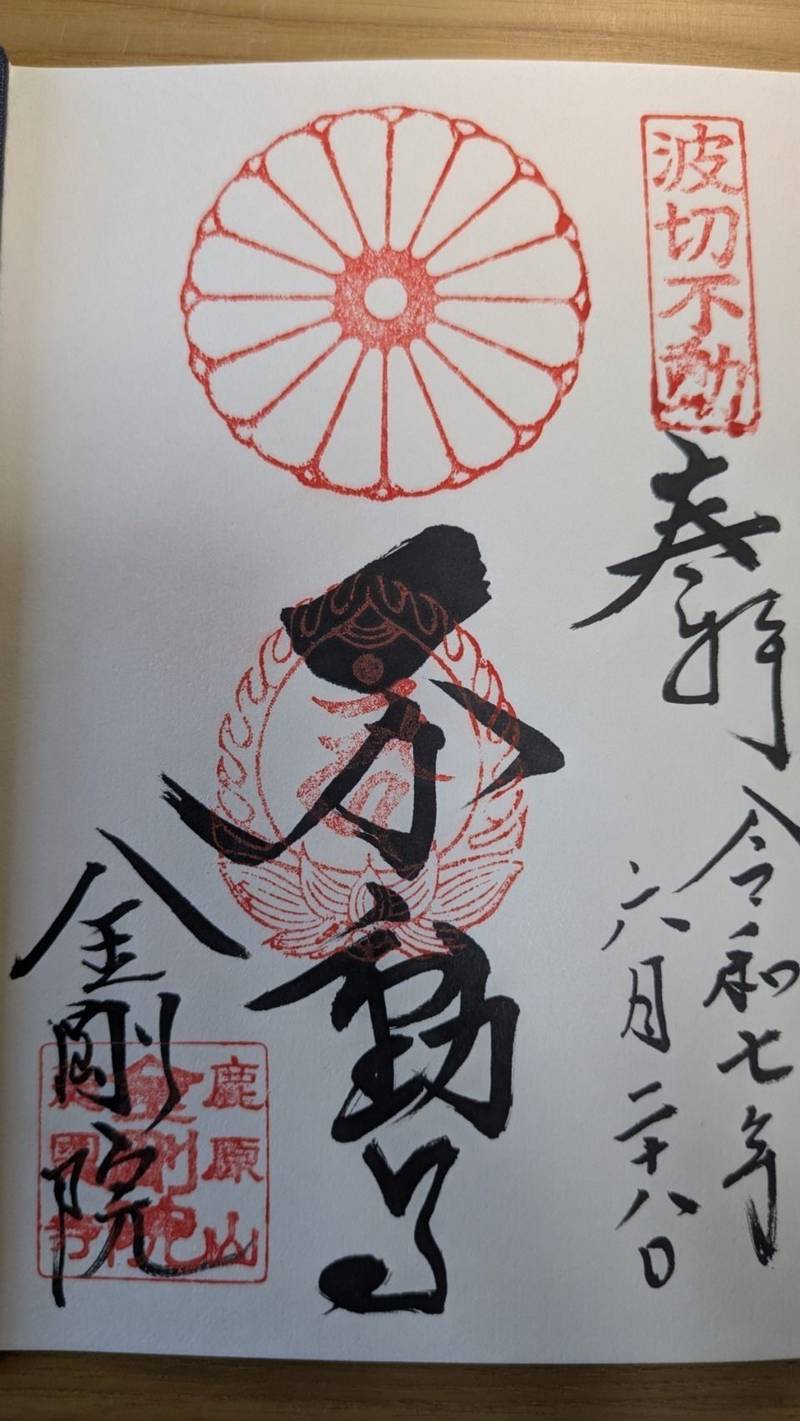 波切不動
奉拝
令和七年
六月二十八日
不動尊
鹿原山
金剛院
金剛院